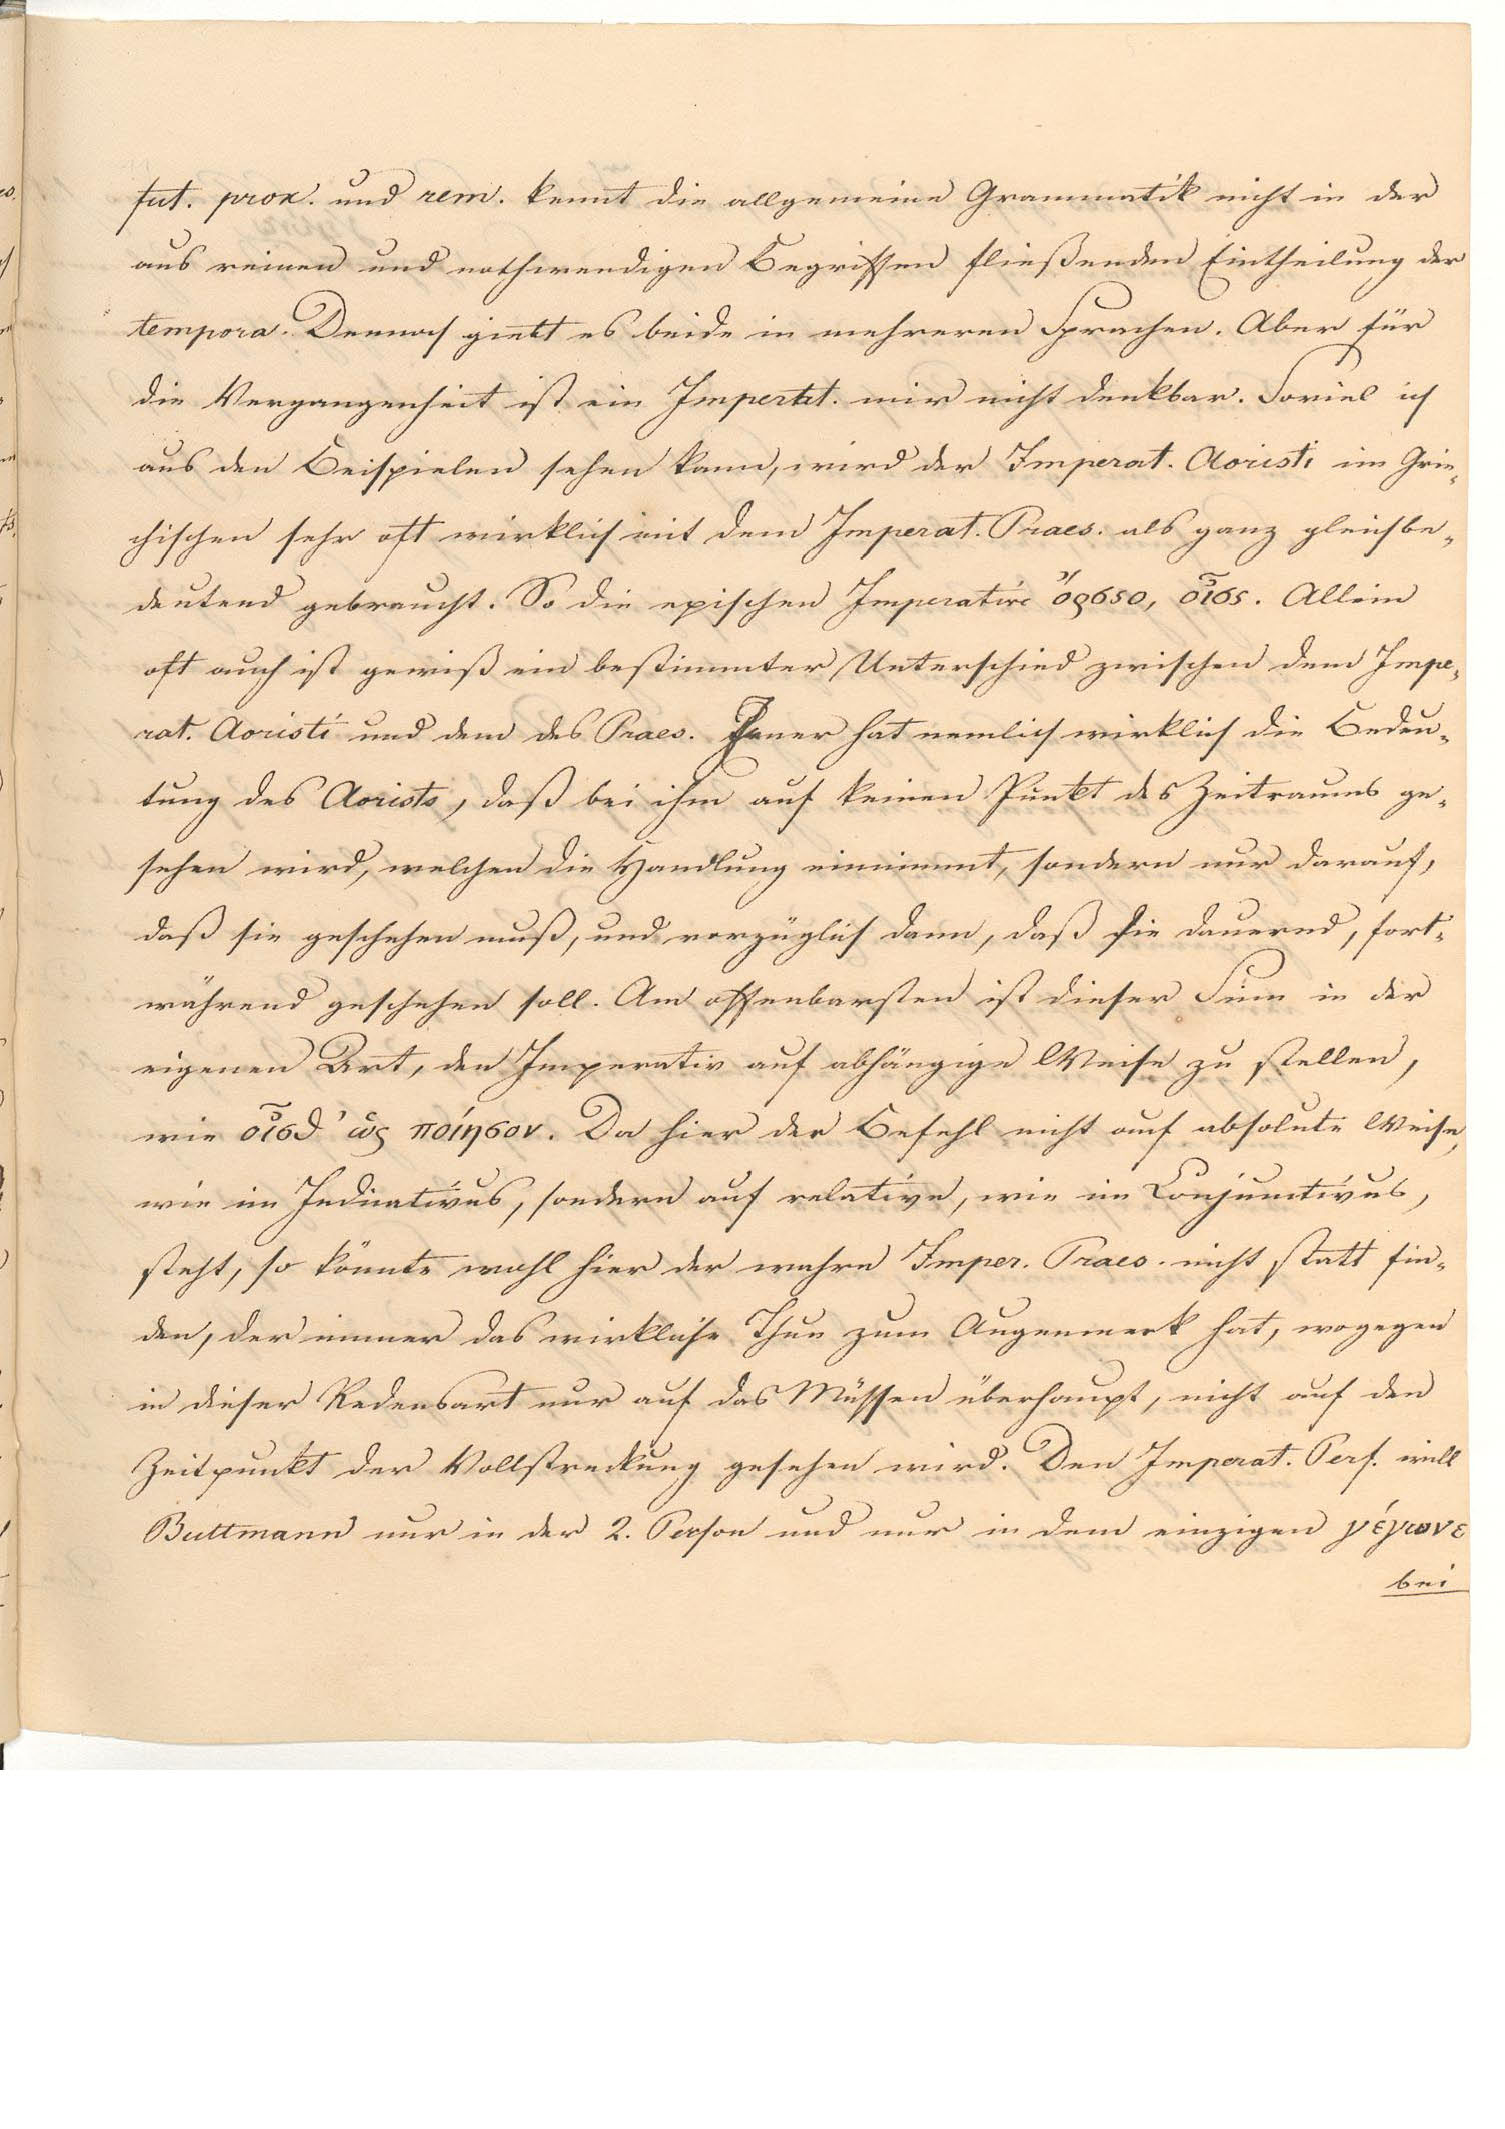 fut. prox. und rem. kennt die allgemeine Grammatik nicht in der
aus reinen und nothwendigen Begriffen fließenden Eintheilung der
tempora. Dennoch giebt es beide in mehreren Sprachen. Aber für
die Vergangenheit ist ein Imperat. mir nicht denkbar. Soviel ich
aus den Beispielen sehen kann, wird der Imperat. Aoristi im Grie-
chischen sehr oft wirklich mit dem Imperat. Praes. als ganz gleichbe-
deutend gebraucht. So die epischen Imperative ὄρσεο, οἶσε. Allein
oft auch ist gewiß ein bestimmter Unterschied zwischen dem Impe-
rat. Aoristi und dem des Praes. Jener hat nemlich wirklich die Bedeu-
tung des Aorists, daß bei ihm auf keinen Punkt des Zeitraums ge-
sehen wird, welchen die Handlung einnimmt, sondern nur darauf,
daß sie geschehen muß, und vorzüglich dann, daß sie dauernd, fort-
während geschehen soll. Am offenbarsten ist dieser Sinn in der
eigenen Art, den Imperativ auf abhängige Weise zu stellen,
wie οἶσθ' ὡς ποίησον. Da hier der Befehl nicht auf absolute Weise,
wie im Indicativus, sondern auf relative, wie im Conjunctivus,
steht, so könnte wohl hier der wahre Imper. Praes. nicht statt fin-
den, der immer das wirkliche Thun zum Augenmerk hat, wogegen
in dieser Redensart nur auf das Müssen überhaupt, nicht auf den
Zeitpunkt der Vollstreckung gesehen wird. Den Imperat. Perf. will
Buttmann nur in der 2. Person und nur in dem einzigen γέγωνε
bei